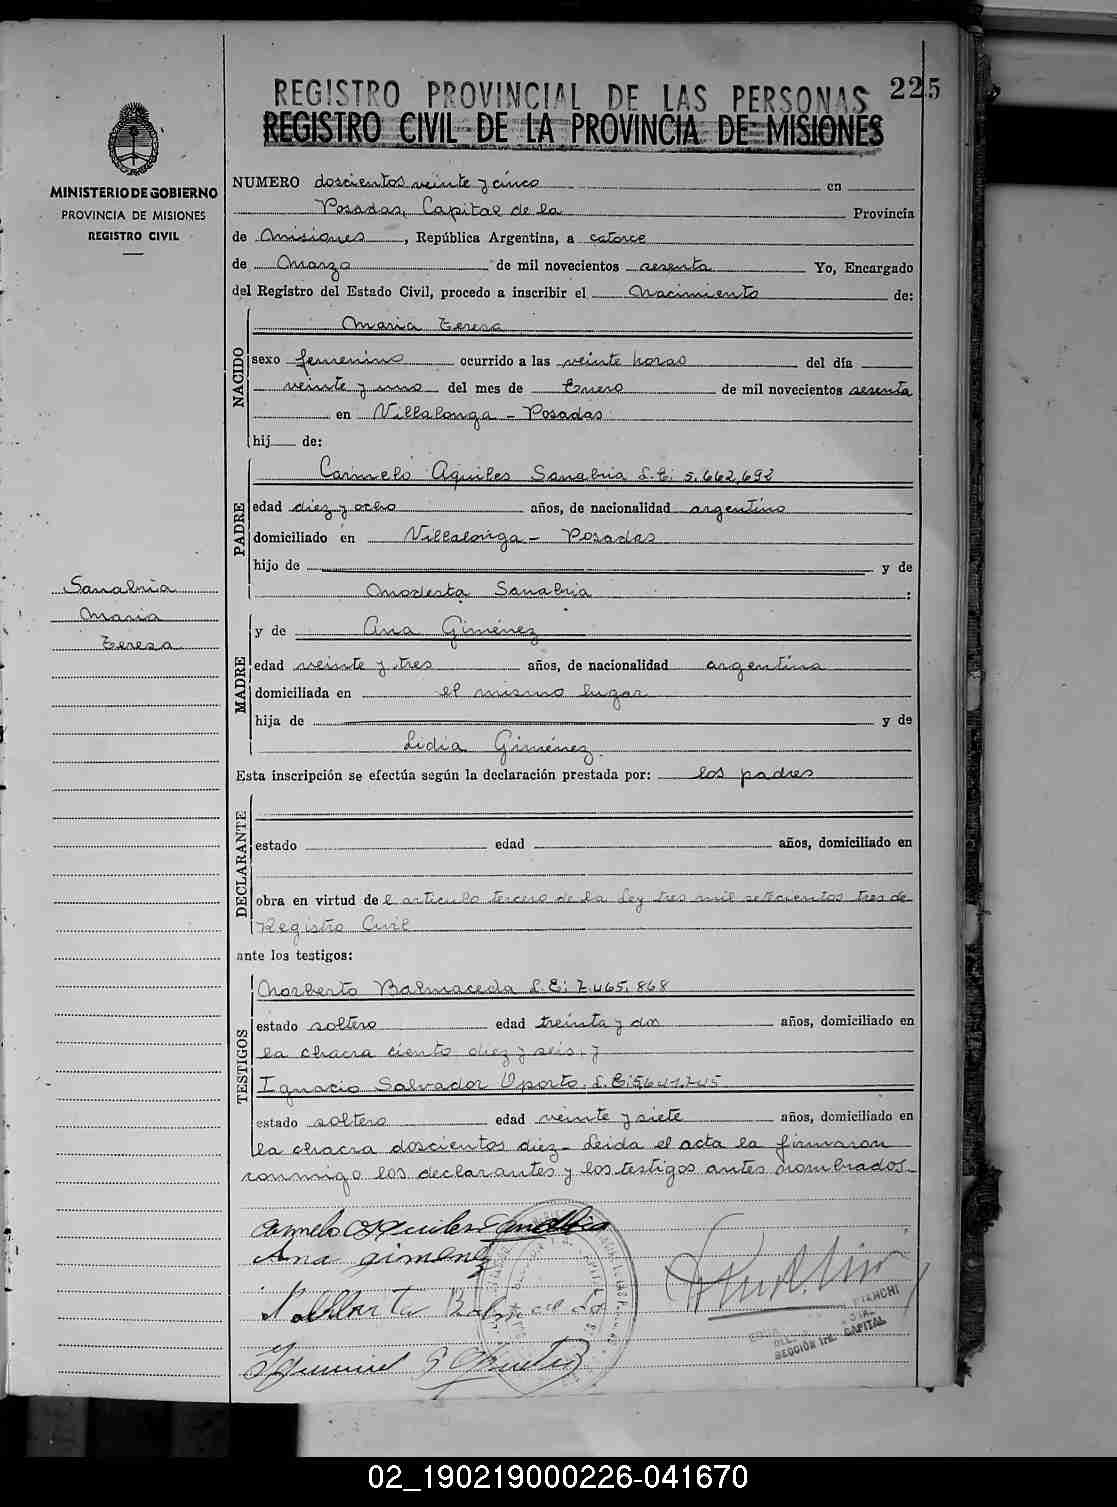 225
REGISTRO PROVINCIAL DE LAS PERSONAS
REGISTRO CIVIL DE LA PROVINCIA DE MISIONES
MINISTERIO DE GOBIERNO
PROVINCIA DE MISIONES
REGISTRO CIVIL
NUMERO doscientos veinte y cinco en
Posadas, Capital de la Provincia
de Misiones, República Argentina, a catorce
de Marzo de mil novecientos sesenta Yo, Encargado
del Registro del Estado Civil, procedo a inscribir el Nacimiento de:
NACIDO
Maria Teresa
sexo femenino ocurrido a las veinte horas del día
veinte y uno del mes de Enero de mil novecientos sesenta
en Villalonga - Posadas
hij de:
PADRE
Carmelo Aquiles Sanabria L.E: 5.662,692
edad diez y ocho años, de nacionalidad argentino
domiciliado en Villalonga - Posadas
hijo de y de
Modesta Sanabria :
Sanabria
Maria
Teresa
MADRE
y de Ana Giménez
edad veinte y tres años, de nacionalidad argentina
domiciliada en el mismo lugar
hija de y de
Lidia Giménez.
Esta inscripción se efectúa según la declaración prestada por: los padres
DECLARANTE
estado edad años, domiciliado en
obra en virtud de l articulo tercero de la Ley tres mil setecientos tres de
Registro Civil
ante los testigos:
TESTIGOS
Norberto Balmaceda L.E: 7.465.868
estado soltero edad treinta y dos años, domiciliado en
la chacra ciento diez y seis. y
Ignacio Salvador Oporto. L.E: 5641.745
estado soltero edad veinte y siete años, domiciliado en
la chacra doscientos diez - Leida el acta la firmaron
conmigo los declarantes y los testigos antes nombrados.-
Carmelo Aquiles Sanabria
Ana Gimenez
SECCIÓN 1RA. CAPITAL
02_190219000226-041670